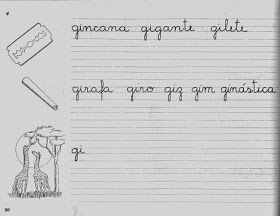 gincana gigante gilete
girafa giro giz gim ginástica
gi
30